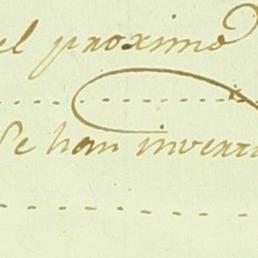 el proximo
Se han inverti